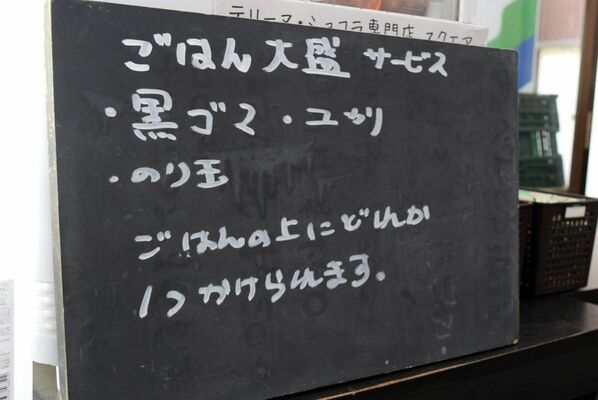 テリーヌ・ショコラ専門店 スクエア
ごはん大盛 サービス
・黒ゴマ・ユカリ
・のり玉
ごはんの上にどれか
1つかけられます。